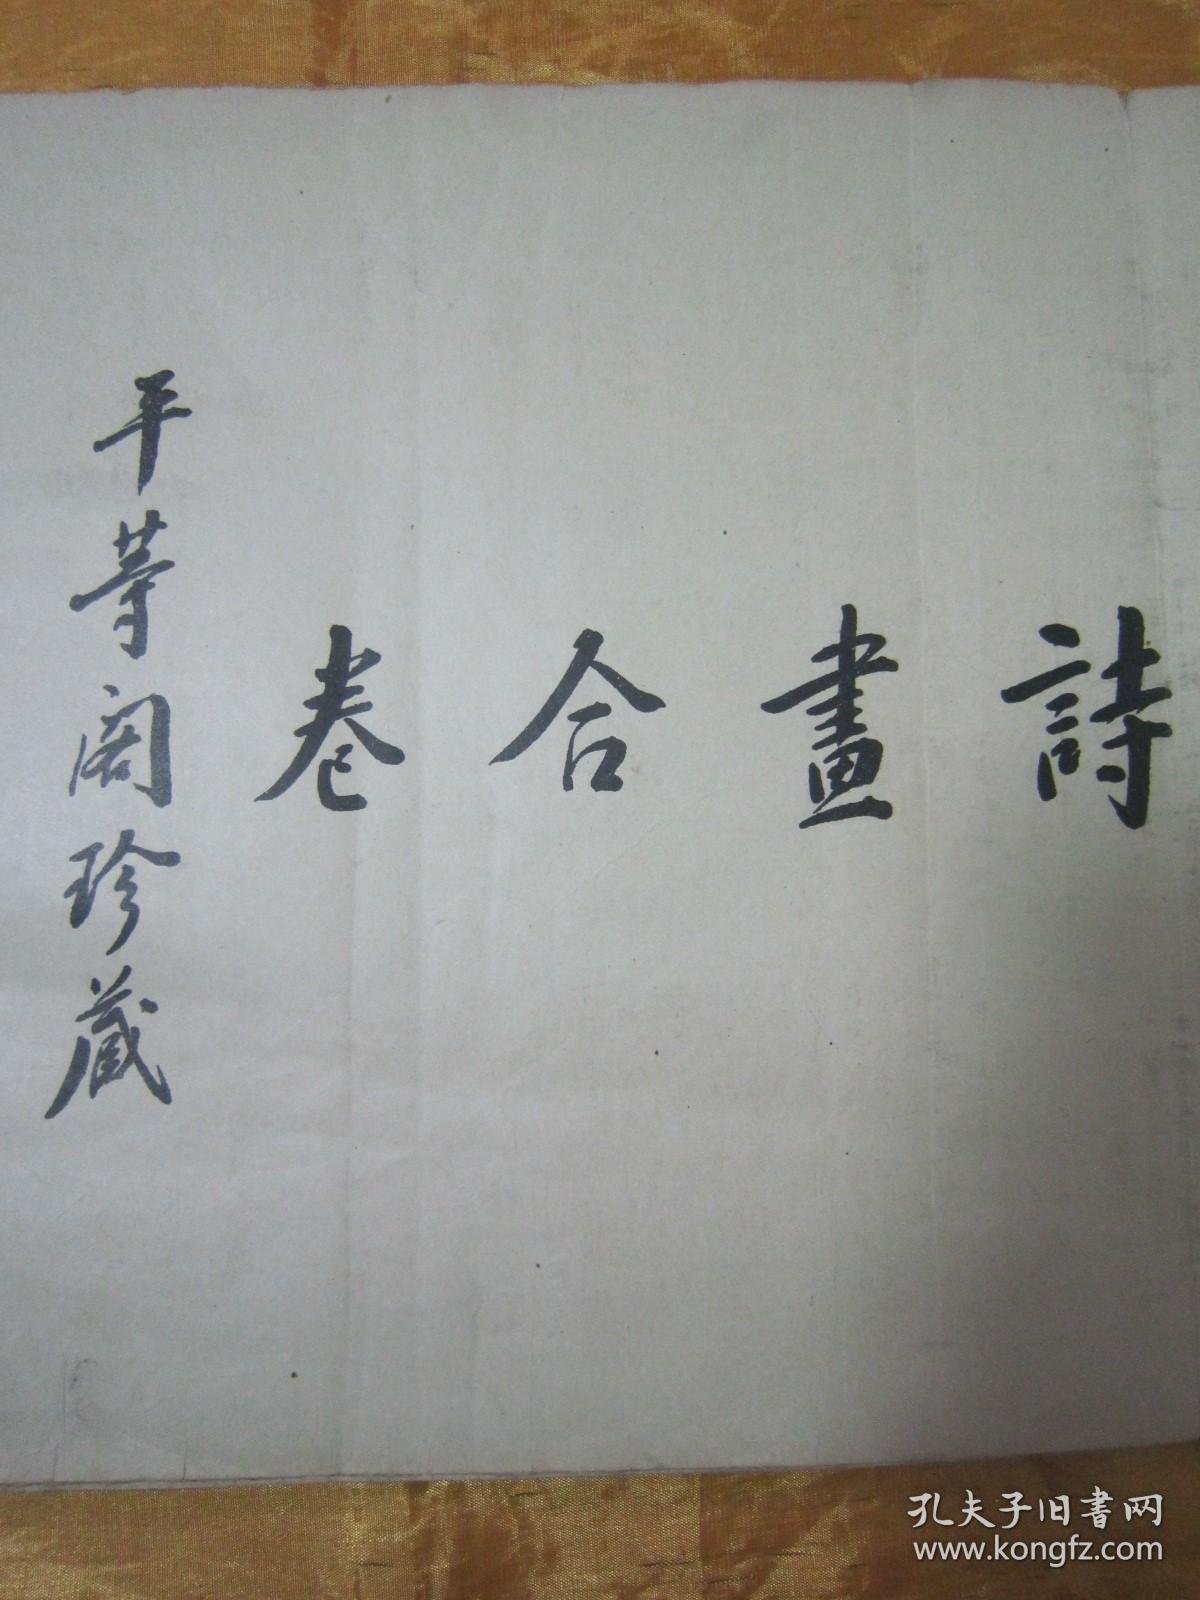 詩畫合卷
平等閣珍藏
孔夫子旧書网
www.kongfz.com